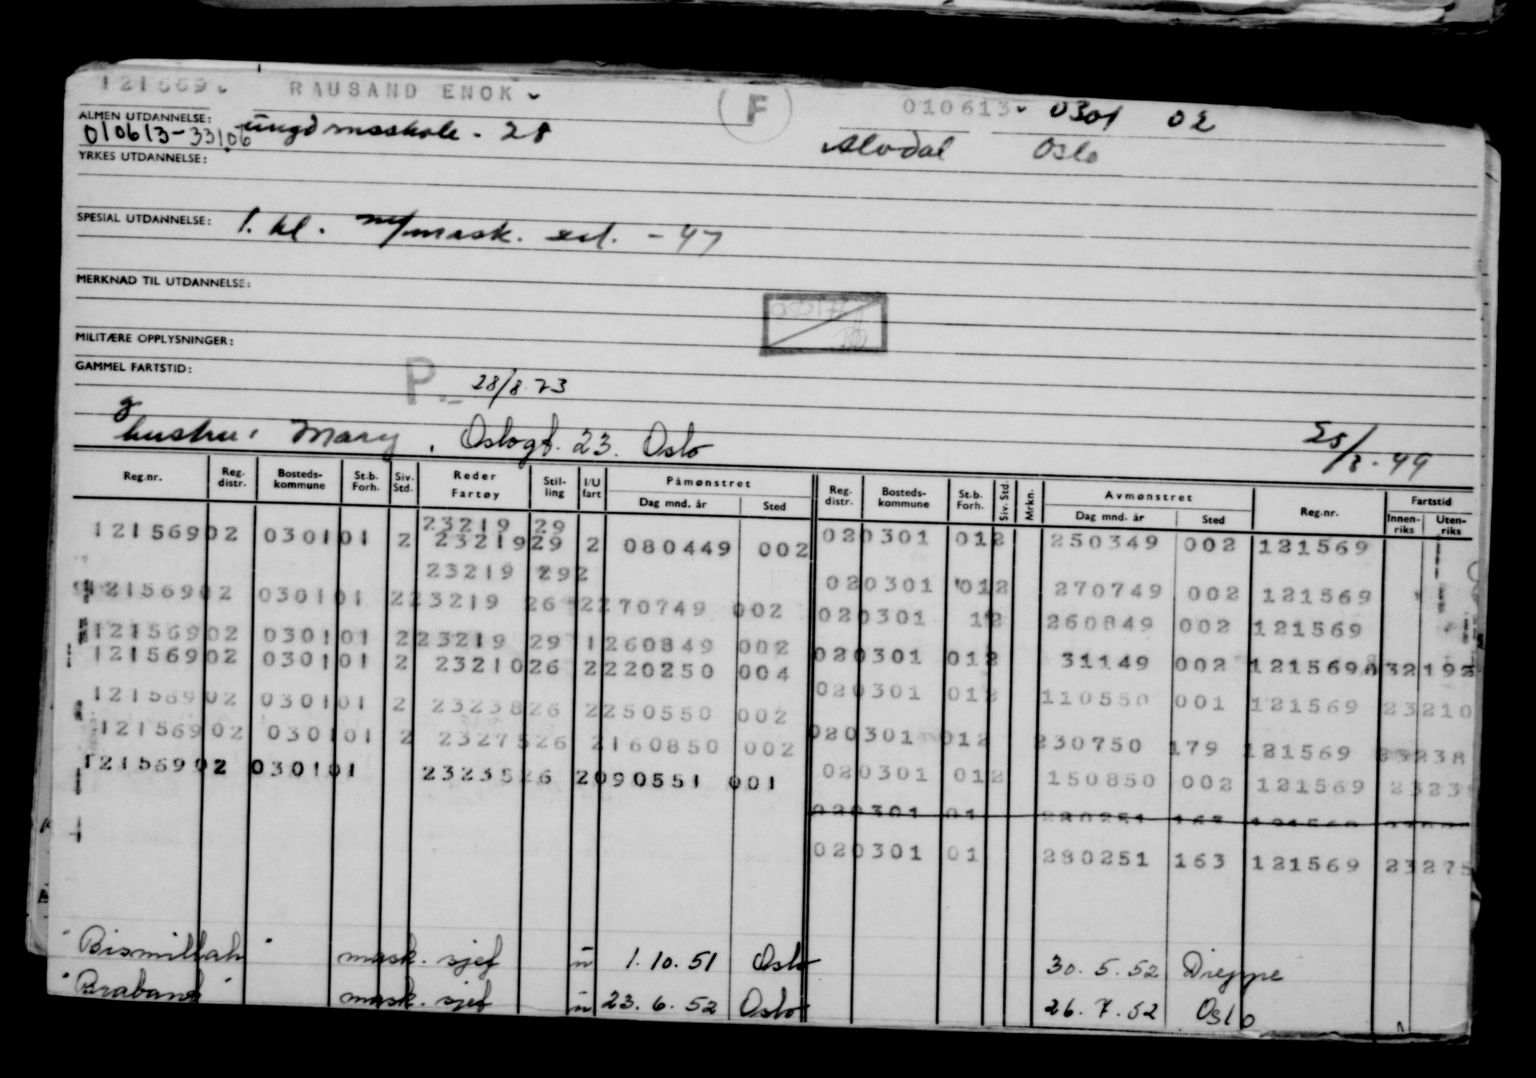 121569 RAUSAND ENOK F 010613 0301 02
ALMEN UTDANNELSE:
010613-33106 ungdomsskole - 28 Alvdal Oslo
YRKES UTDANNELSE:
SPESIAL UTDANNELSE: 1. kl. m/mask. - 47
MERKNAD TIL UTDANNELSE:
MILITÆRE OPPLYSNINGER:
GAMMEL FARTSTID:
P. 28/8 73
hustru: Mary, Oslogt. 23. Oslo 25/3-49
Reg.nr. Reg. distr. Bosteds-kommune St.b. Forh. Siv. Std. Reder Fartøy Stil-ling I/U fart Påmønstret Dag mnd. år Sted Reg. distr. Bosteds-kommune St.b. Forh. Siv. Std. Mrkn. Avmønstret Dag mnd. år Sted Reg.nr. Fartstid Innen-riks Uten-riks
23219 29
121569 02 0301 01 2 23219 29 2 080449 002 02 0301 01 2 250349 002 121569
23219 29 2 02 0301 01 2 270749 002 121569
121569 02 0301 01 2 23219 26 2 270749 002 02 0301 1 2 260849 002 121569
121569 02 0301 01 2 23219 29 1 260849 002 02 0301 01 2 31149 002 121569
121569 02 0301 01 2 23210 26 2 220250 004 02 0301 01 2 110550 001 121569 23210
121569 02 0301 01 2 23238 26 2 250550 002 02 0301 01 2 230750 179 121569 23238
121569 02 0301 01 2 23275 26 2 160850 002 02 0301 01 2 150850 002 121569
121569 02 0301 01 23235 26 2 090551 001
02 0301 01 280251 163 121569
02 0301 01 280251 163 121569 23275
"Bismillah" mask. sjef u 1.10.51 Oslo 30.5.52 Dieppe
"Brabant" mask. sjef u 23.6.52 Oslo 26.7.52 Oslo